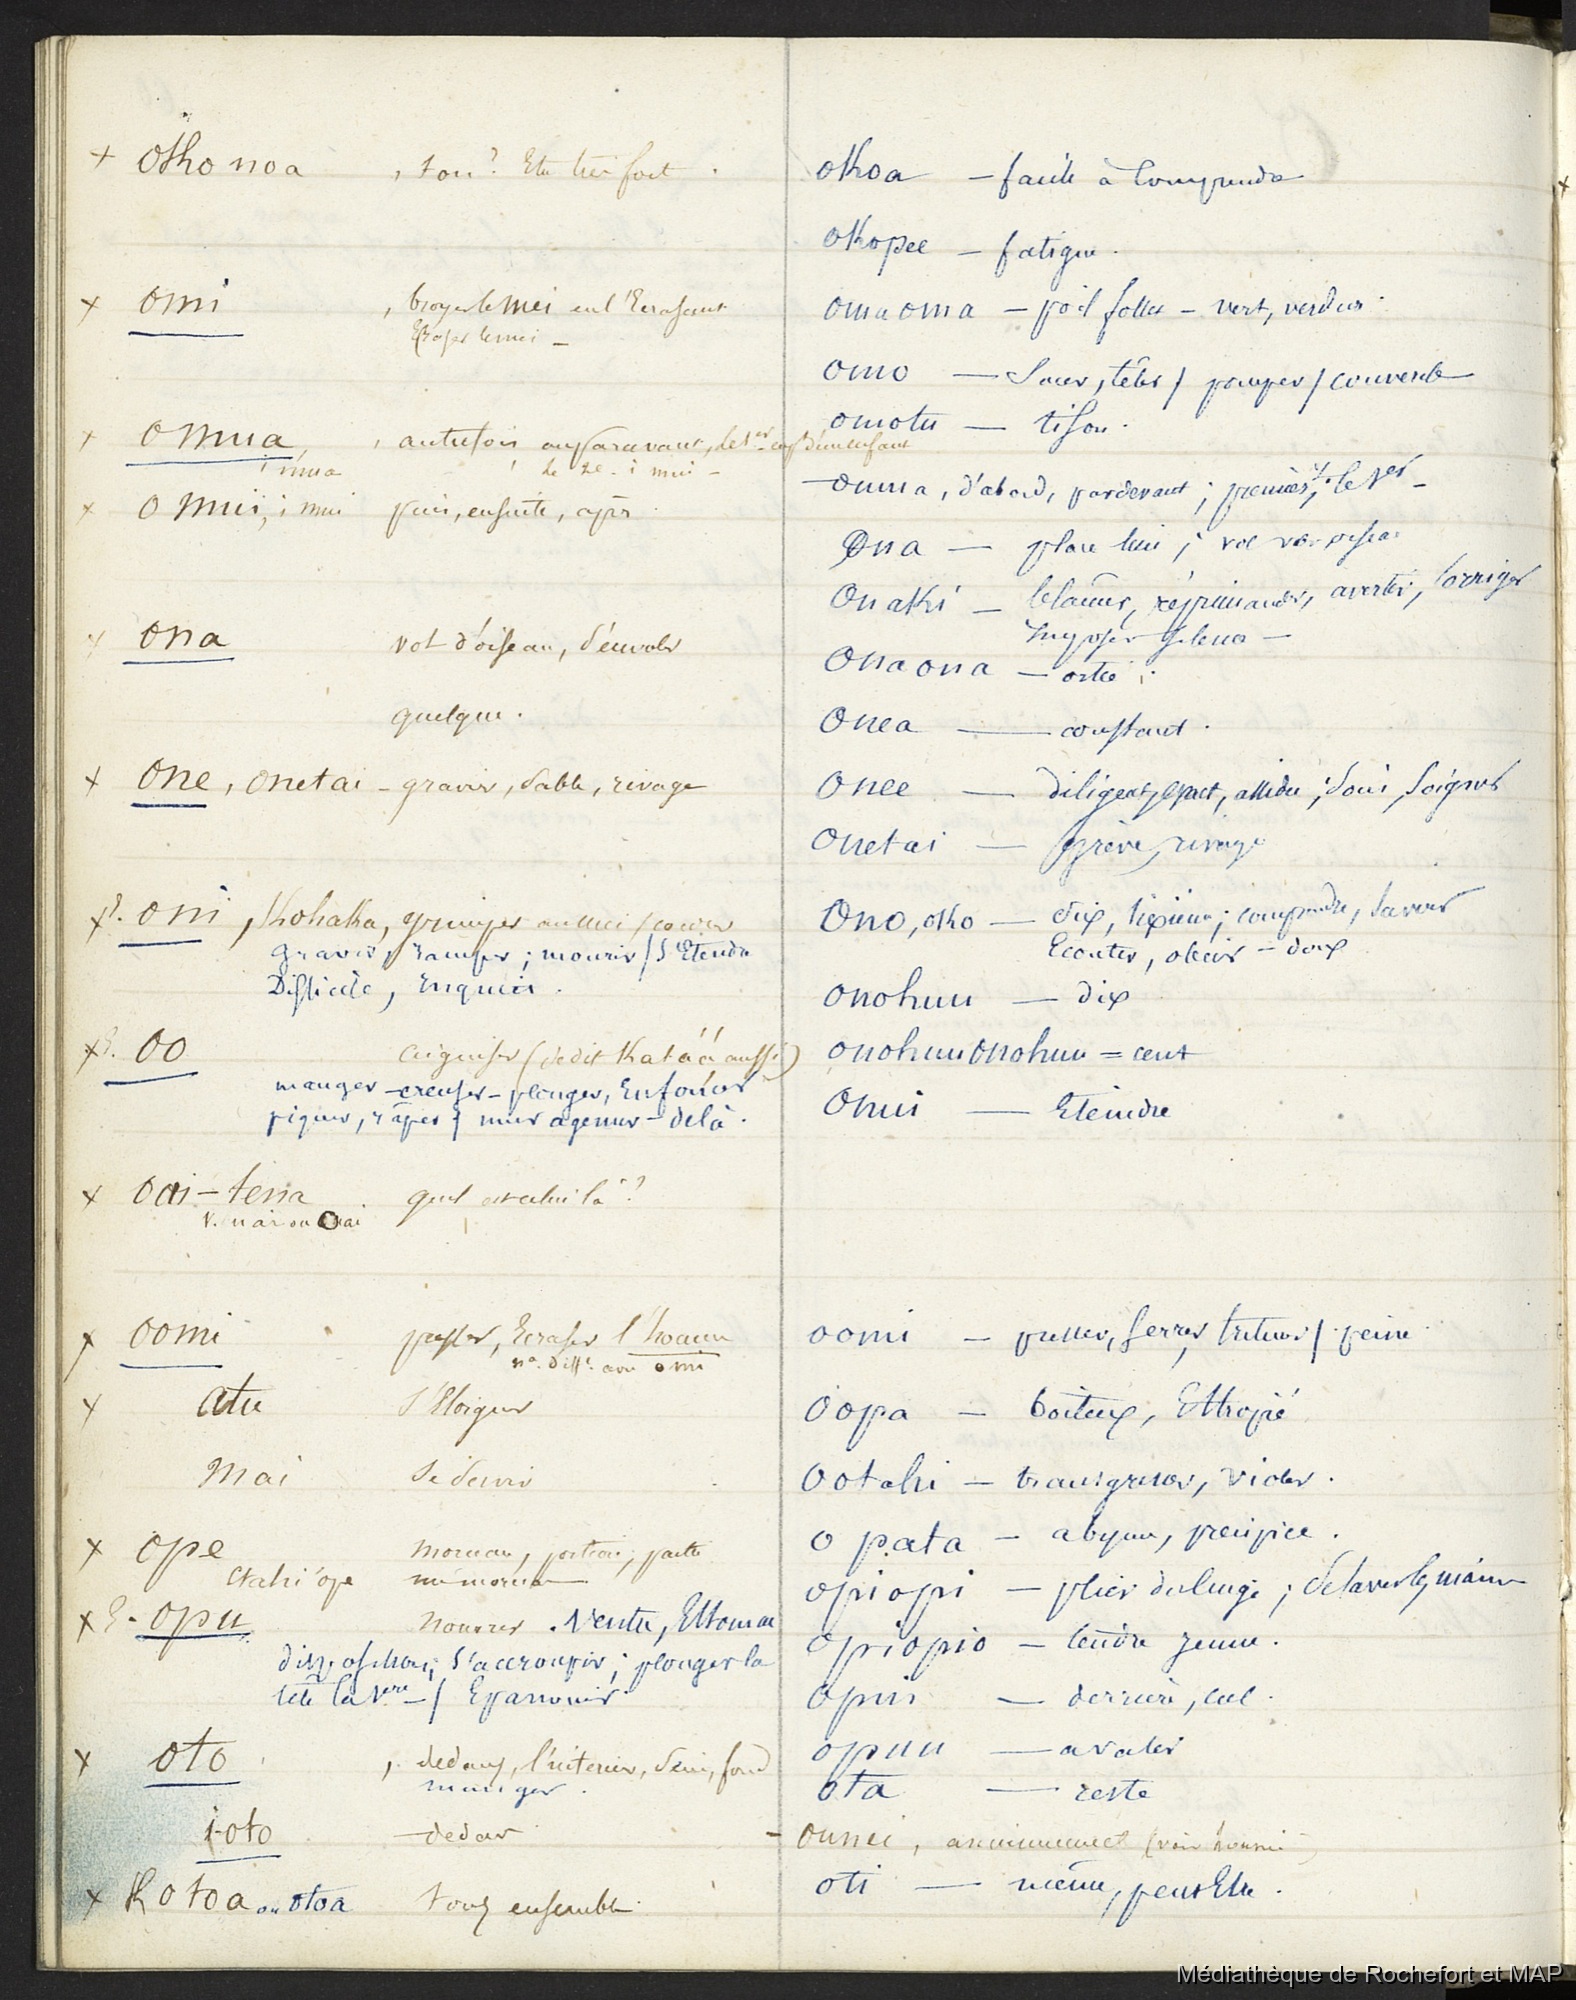 × oKo noa , ton? Etre très fort .
× omi , broyer le mei en l'Ecrasant
Ecraser le mei –
× omua , autrefois auparavant, le 1er enft d'un enfant
i mua le 2e. i mui –
× o mui, i mui puis, ensuite, après
× ona vol d'oiseau, s'envoler
quelque .
× one, onetai – gravier, sable, rivage
oni, Kohaka, grimper
gravir, ramper ; mourir / s'Etendre
Difficile, Enquérir .
oo aiguiser (se dit Kataá aussi)
manger – creuser – plonger, Enfoncer
piquer, râper / mur à genoux – delà .
× oai – tena quel est celui là ?
v. oai
× oomi presser, Ecraser l'hoauu
na. diffe. avec omi
× atu s'Eloigner
Mai se servir
× ope morceau, portion, partie
Etahi ope un morceau
× E. opu nourrir . Ventre, Estomac
disposition ; s'accroupir ; plonger la
tête la 1ere – / Epanouir
× oto , dedans, l'intérieur, sein, fond
manger .
i oto dedans
× Kotoa ou otoa tous ensemble
oKoa – facile à comprendre
oKopee – fatigue .
omaoma – poil follet – vert, verdeur .
omo — Sucer, têter / pomper / couvercle
omotu — tison .
omua, d'abord, pardevant ; premier ; le 1er –
Ona — vol
OnaKi – blâmer, réprimander, avertir, corriger
Imposer silence –
Onaona – ortie .
Onea — constant .
Onee — diligent, exact, assidu ; soin, soigner
Onetai — grève, rivage
Ono, oKo — dix, ; comprendre, savoir
Ecouter, obéir – doux
onohuu — dix
onohuuonohuu = cent
Onui — Eteindre
oomi – presser, serrer, triturer / peine
Oopa – boiteux, Estropié
Ootahi – transgresser, violer .
o pata – abyme, précipice .
opiopi – plier du linge ; se laver les mains
opiopio – tendre jeune .
opui — derrière, cul .
opuu — avaler
ota — reste
– ounei, anciennement (voir
oti — même, peut Etre .
Médiathèque de Rochefort et MAP